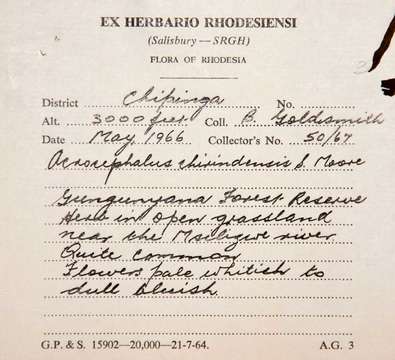 EX HERBARIO RHODESIENSI
(Salisbury — SRGH)
FLORA OF RHODESIA
District Chipinga No.
Alt. 3000 feet. Coll. B. Goldsmith
Date May, 1966 Collector's No. 50/67
Acrocephalus chirindensis S. Moore
Gungunyana Forest Reserve
Herb in open grassland
near the Msilizwe river.
Quite common
Flowers pale whitish to
dull bluish.
G.P. & S. 15902—20,000—21-7-64. A.G. 3